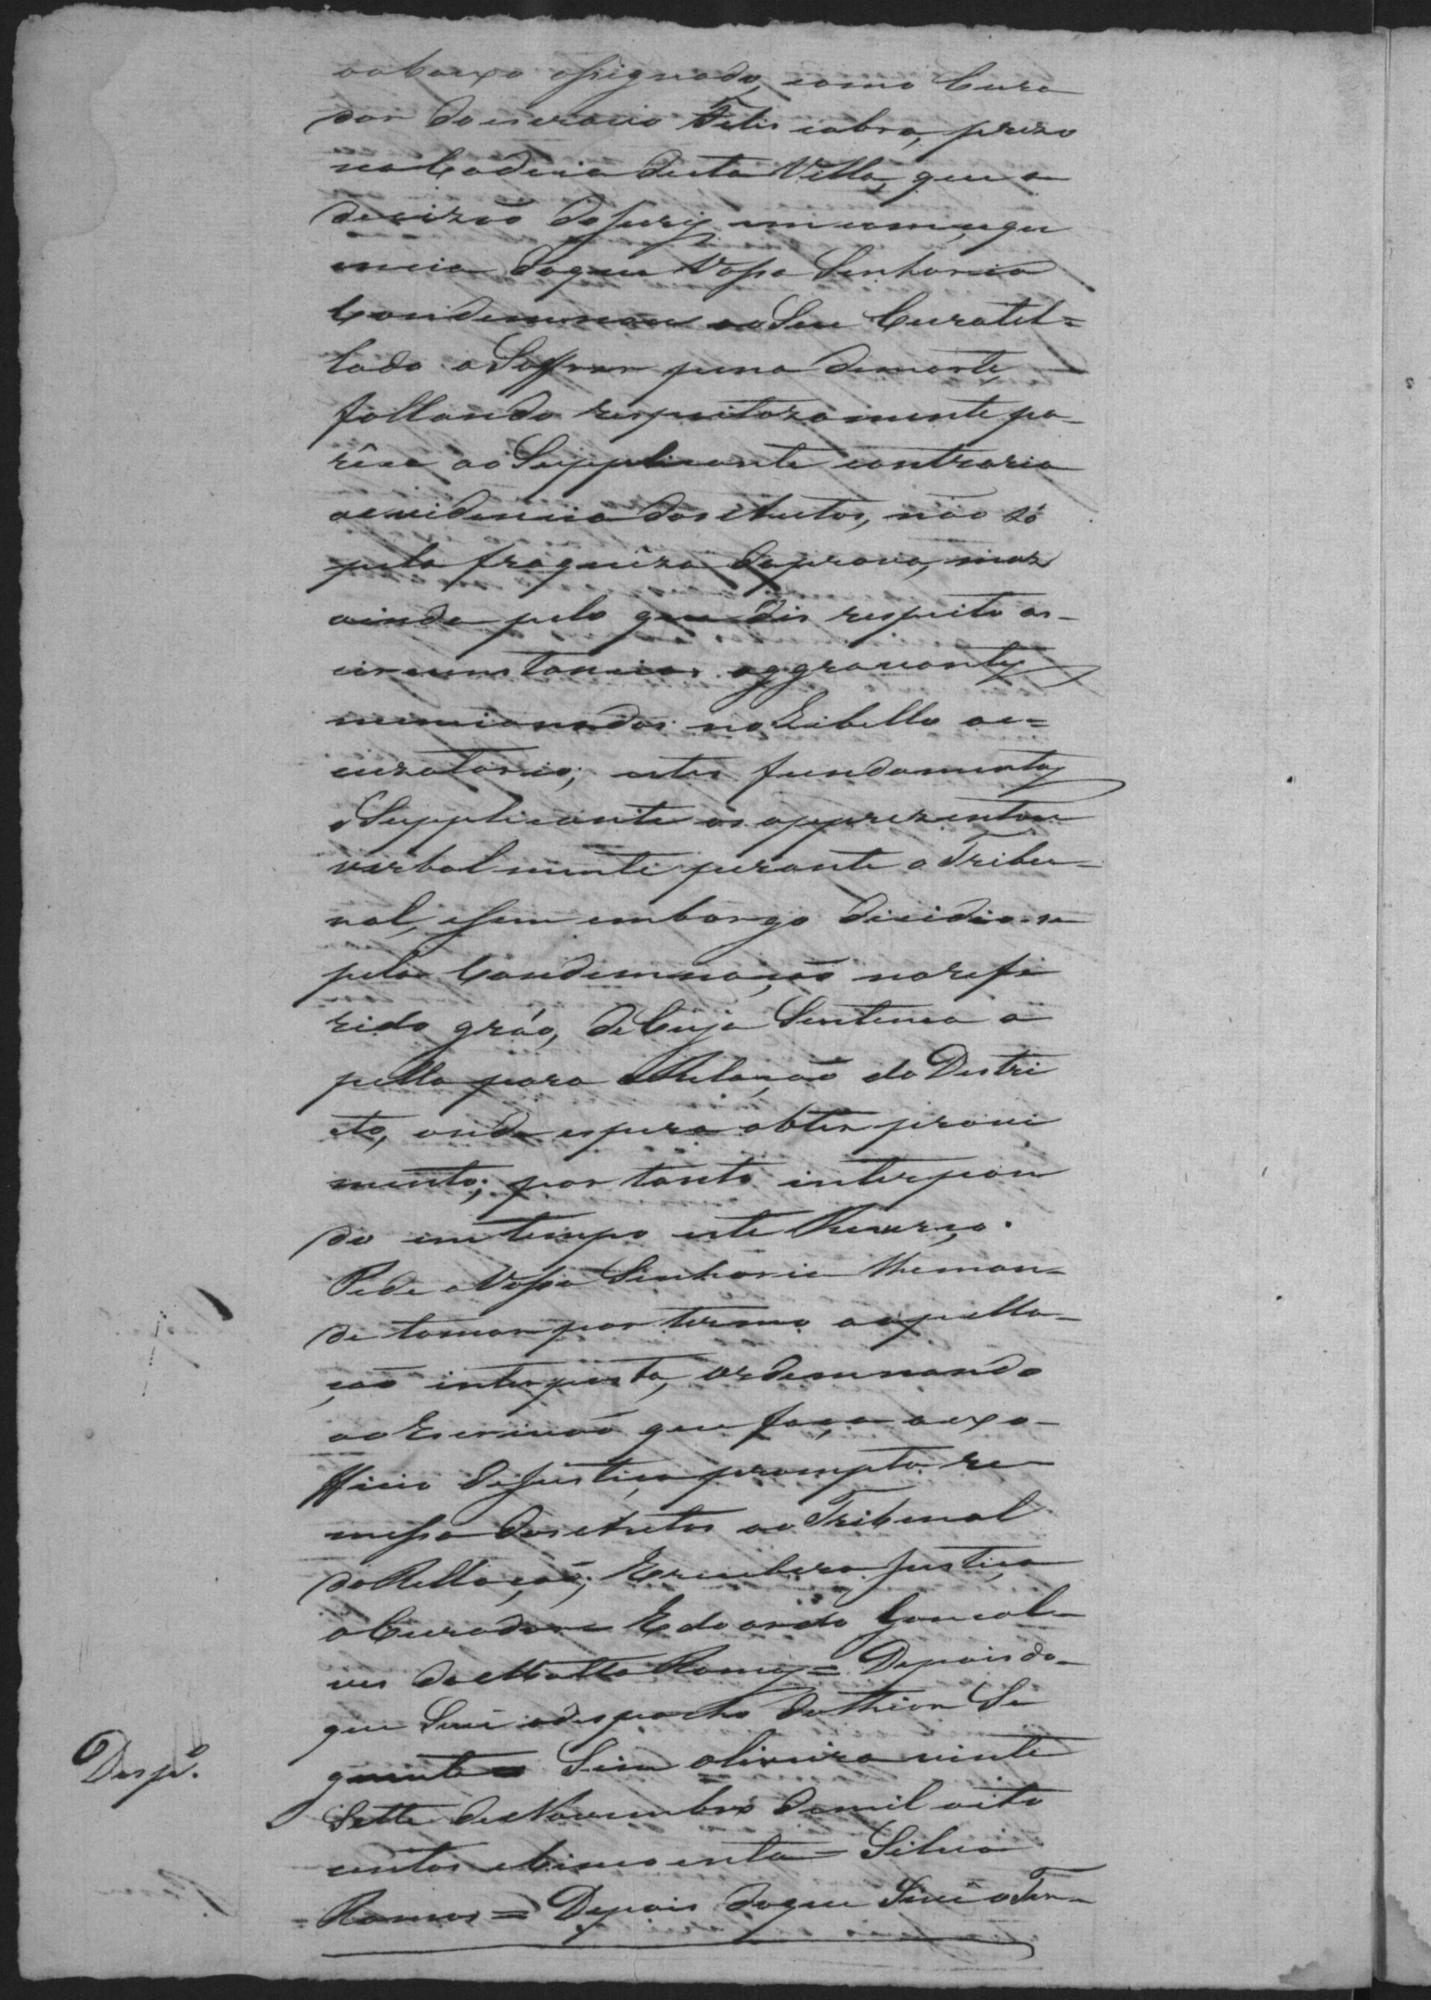 aabaixo assignado, como Cura
dor do escravo Felis cabra, prezo
na Cadeia desta Villa, que a
decizaõ do Jury em consequ
encia do que Vossa Senhoria
Condemnou ao Seu Curatel=
lado a Soffrer pena de morte,
fallando respeitozamente pa-
rêce ao Supplicante contraria
aevidencia dos Autos, não só
pela fraqueza da prova, mas
ainda pelo que dis respeito as
circunstancias aggravantes
mencionados no Libello ac=
cuzatorio; estes fundamentos
o Supplicante os apprezentou
verbalmente perante o Tribu-
nal, esem embargo dicidio-se
pela Condemnação no refe
rido gráo, de Cuja Sentença a
pella para a Relação do Destri
cto, onde espera obter provi
mento; por tanto interpon
do em tempo este Recurço.
Pede a Vossa Senhoria lhe man=
de tomar por termo a apella-
ção interposta, ordennando
ao Escrivaõ que faça aexo-
fficio de Justiça prompta re
messa dos Autos ao Tribunal
da Rellação; E recebera Justiça
o Curador Edoardo Goncal-
ves da Motta Ramos = Depois do-
que Se via o despacho do theor Se
guinte = Sim Oliveira vinte
Sette de Novembro de mil oito
centos e Cincoenta = Silva
Ramos = Depois do que Se via o Ter-
Despº.